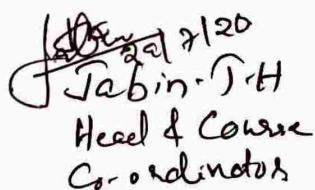 29/7/20
Jabin.J.H
Head & Course
Co-ordinator